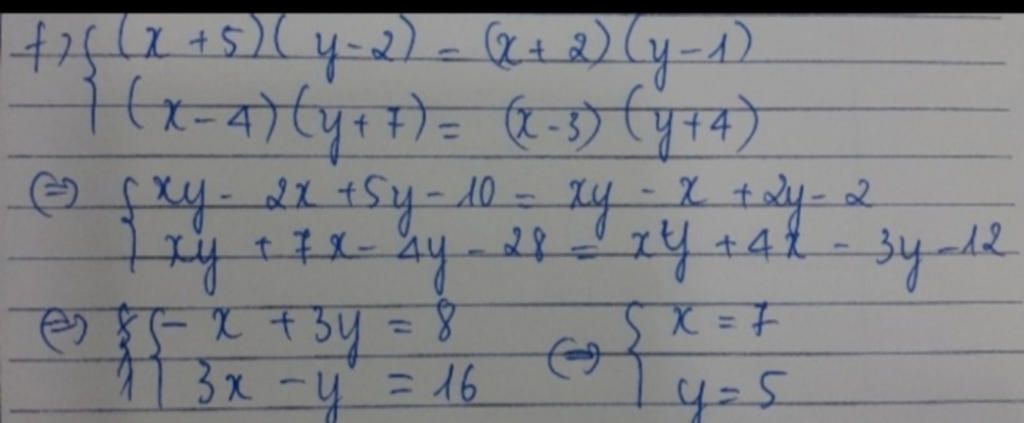 f) { (x + 5)( y - 2) = (x + 2)(y - 1)
(x - 4)(y + 7) = (x - 3)(y + 4)
(=) { xy - 2x + 5y - 10 = xy - x + 2y - 2
xy + 7x - 4y - 28 = xy + 4x - 3y - 12
(=) { - x + 3y = 8 (=) { x = 7
3x - y = 16 y = 5